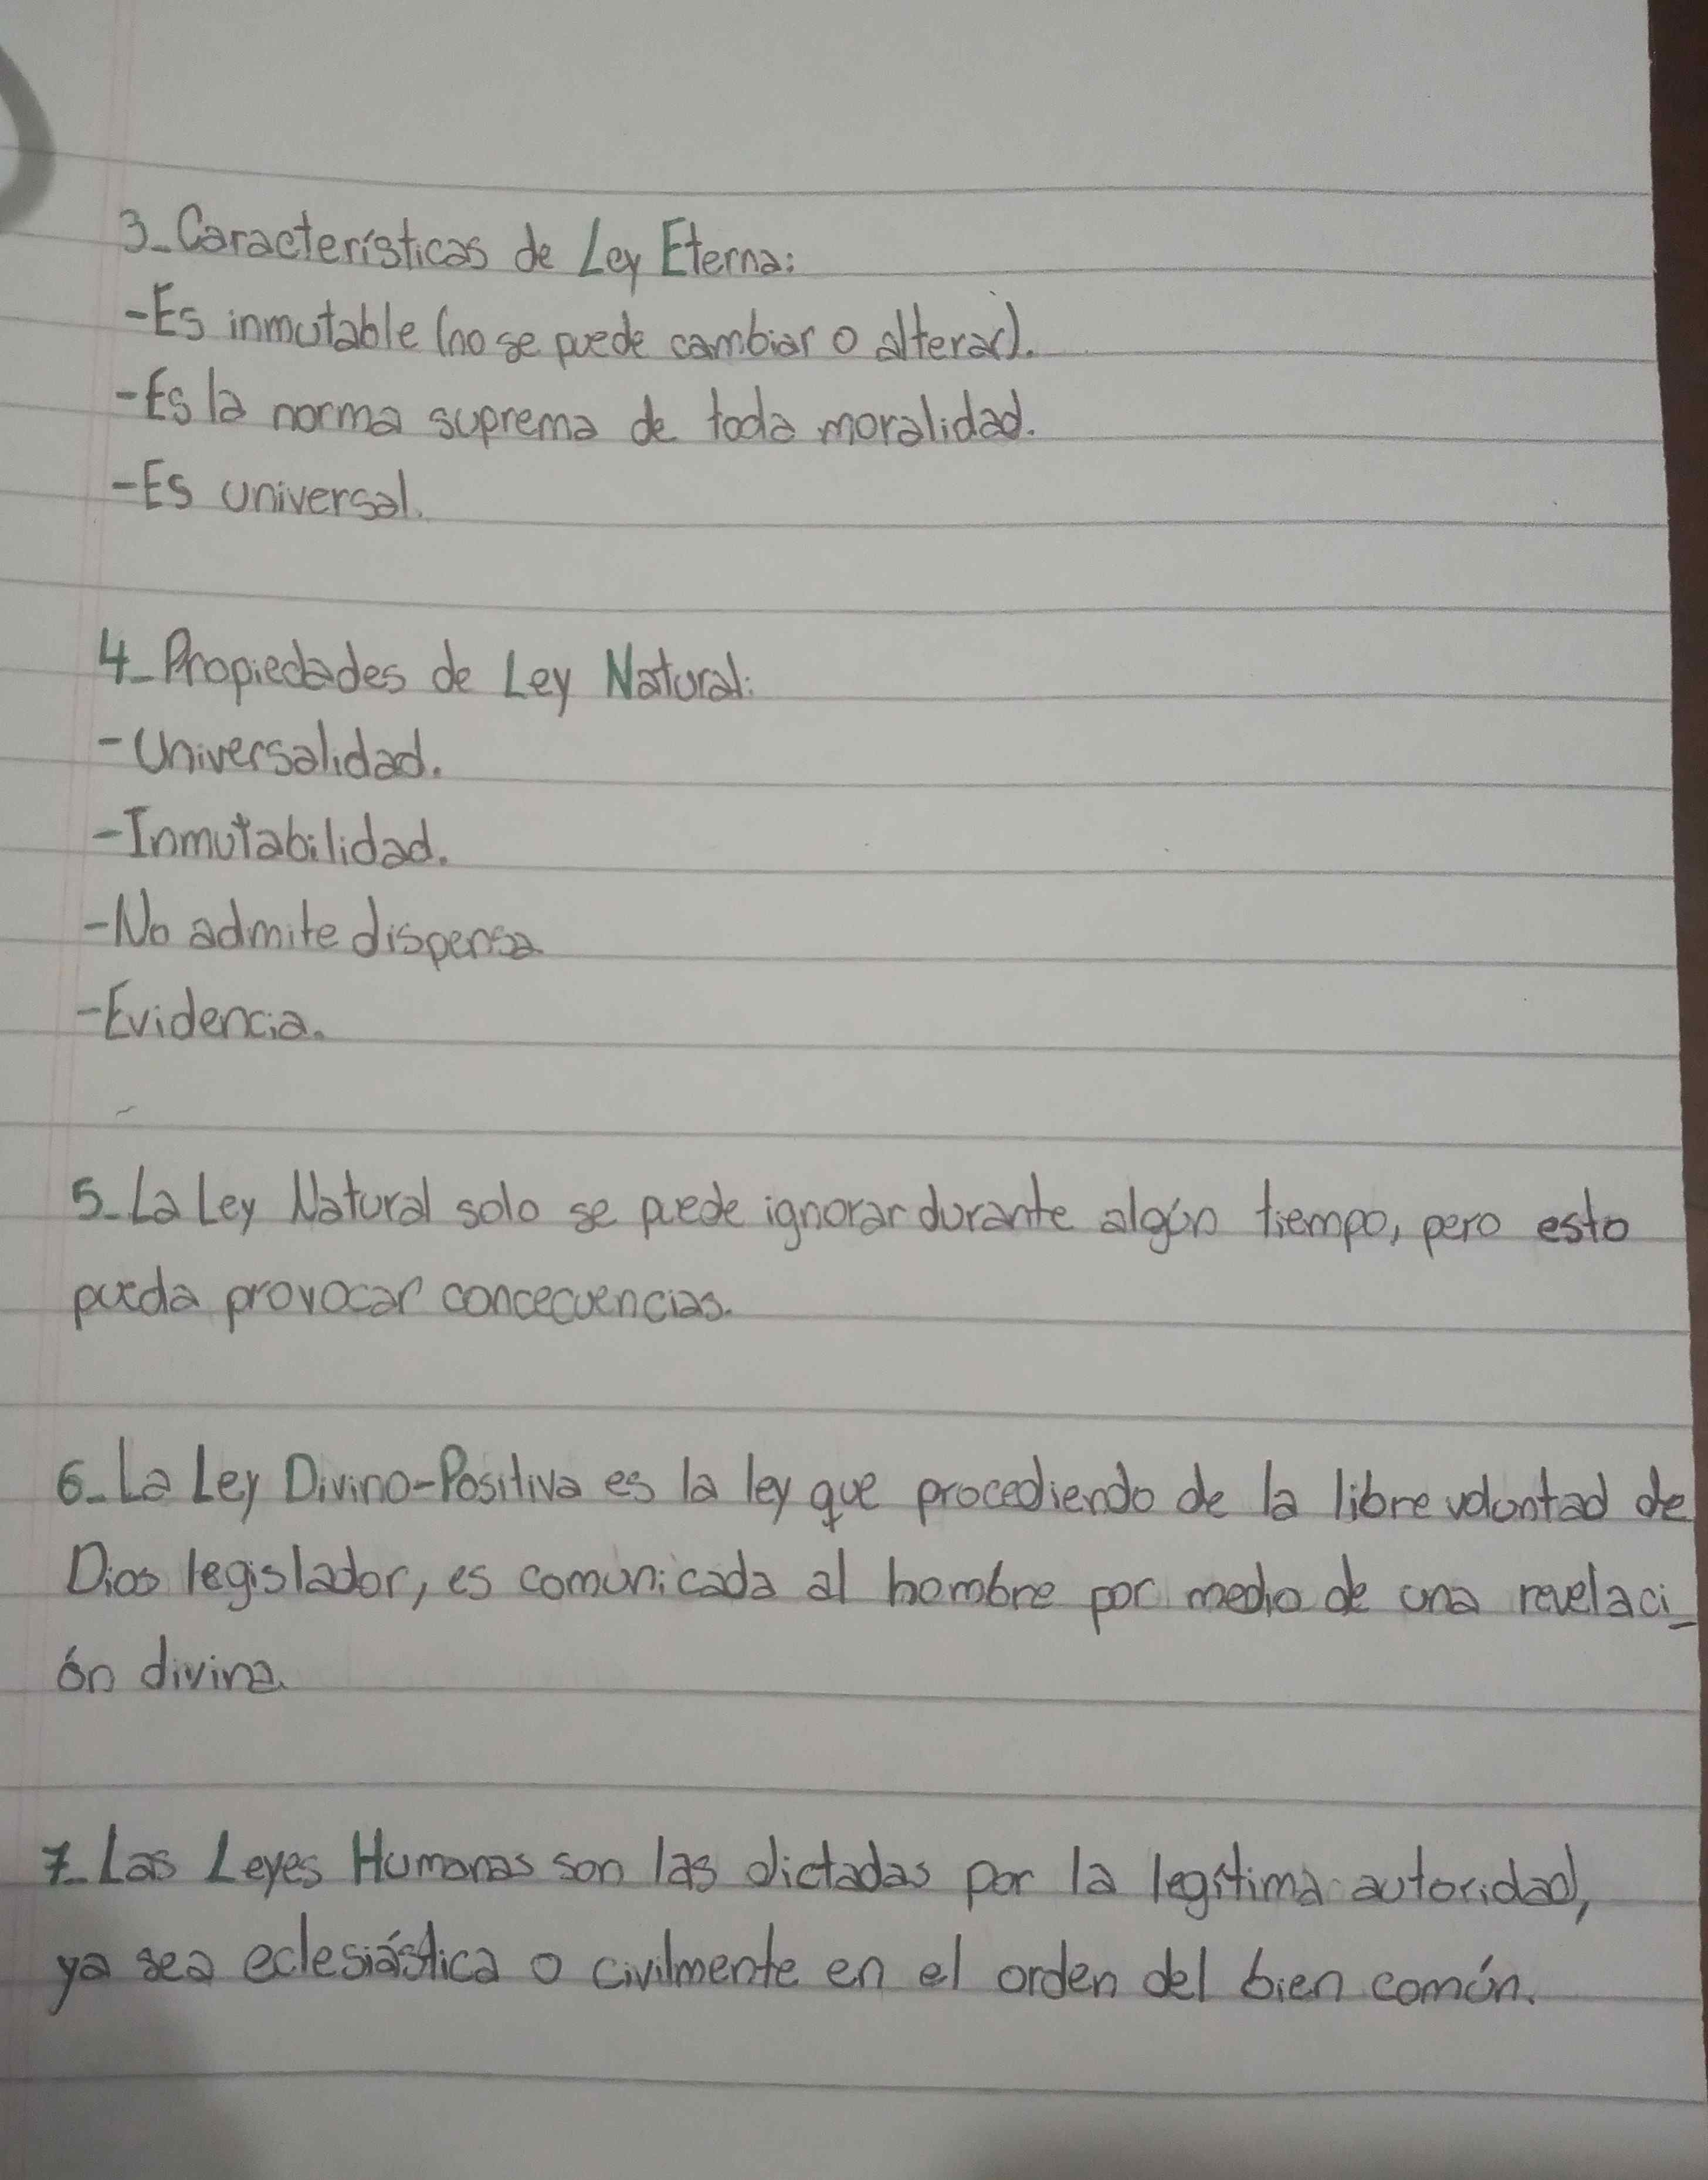 3_Características de Ley Eterna:
-Es inmutable (no se puede cambiar o alterar).
-Es la norma suprema de toda moralidad.
-Es universal.
4_Propiedades de Ley Natural:
-Universalidad.
-Inmutabilidad.
-No admite dispensa
-Evidencia.
5_La Ley Natural solo se puede ignorar durante algún tiempo, pero esto
pueda provocar concecuencias.
6_La Ley Divino-Positiva es la ley que procediendo de la libre voluntad de
Dios legislador, es comunicada al hombre por medio de una revelaci_
ón divina.
7_Las Leyes Humanas son las dictadas por la legítima autoridad,
ya sea eclesiástica o civilmente en el orden del bien común.